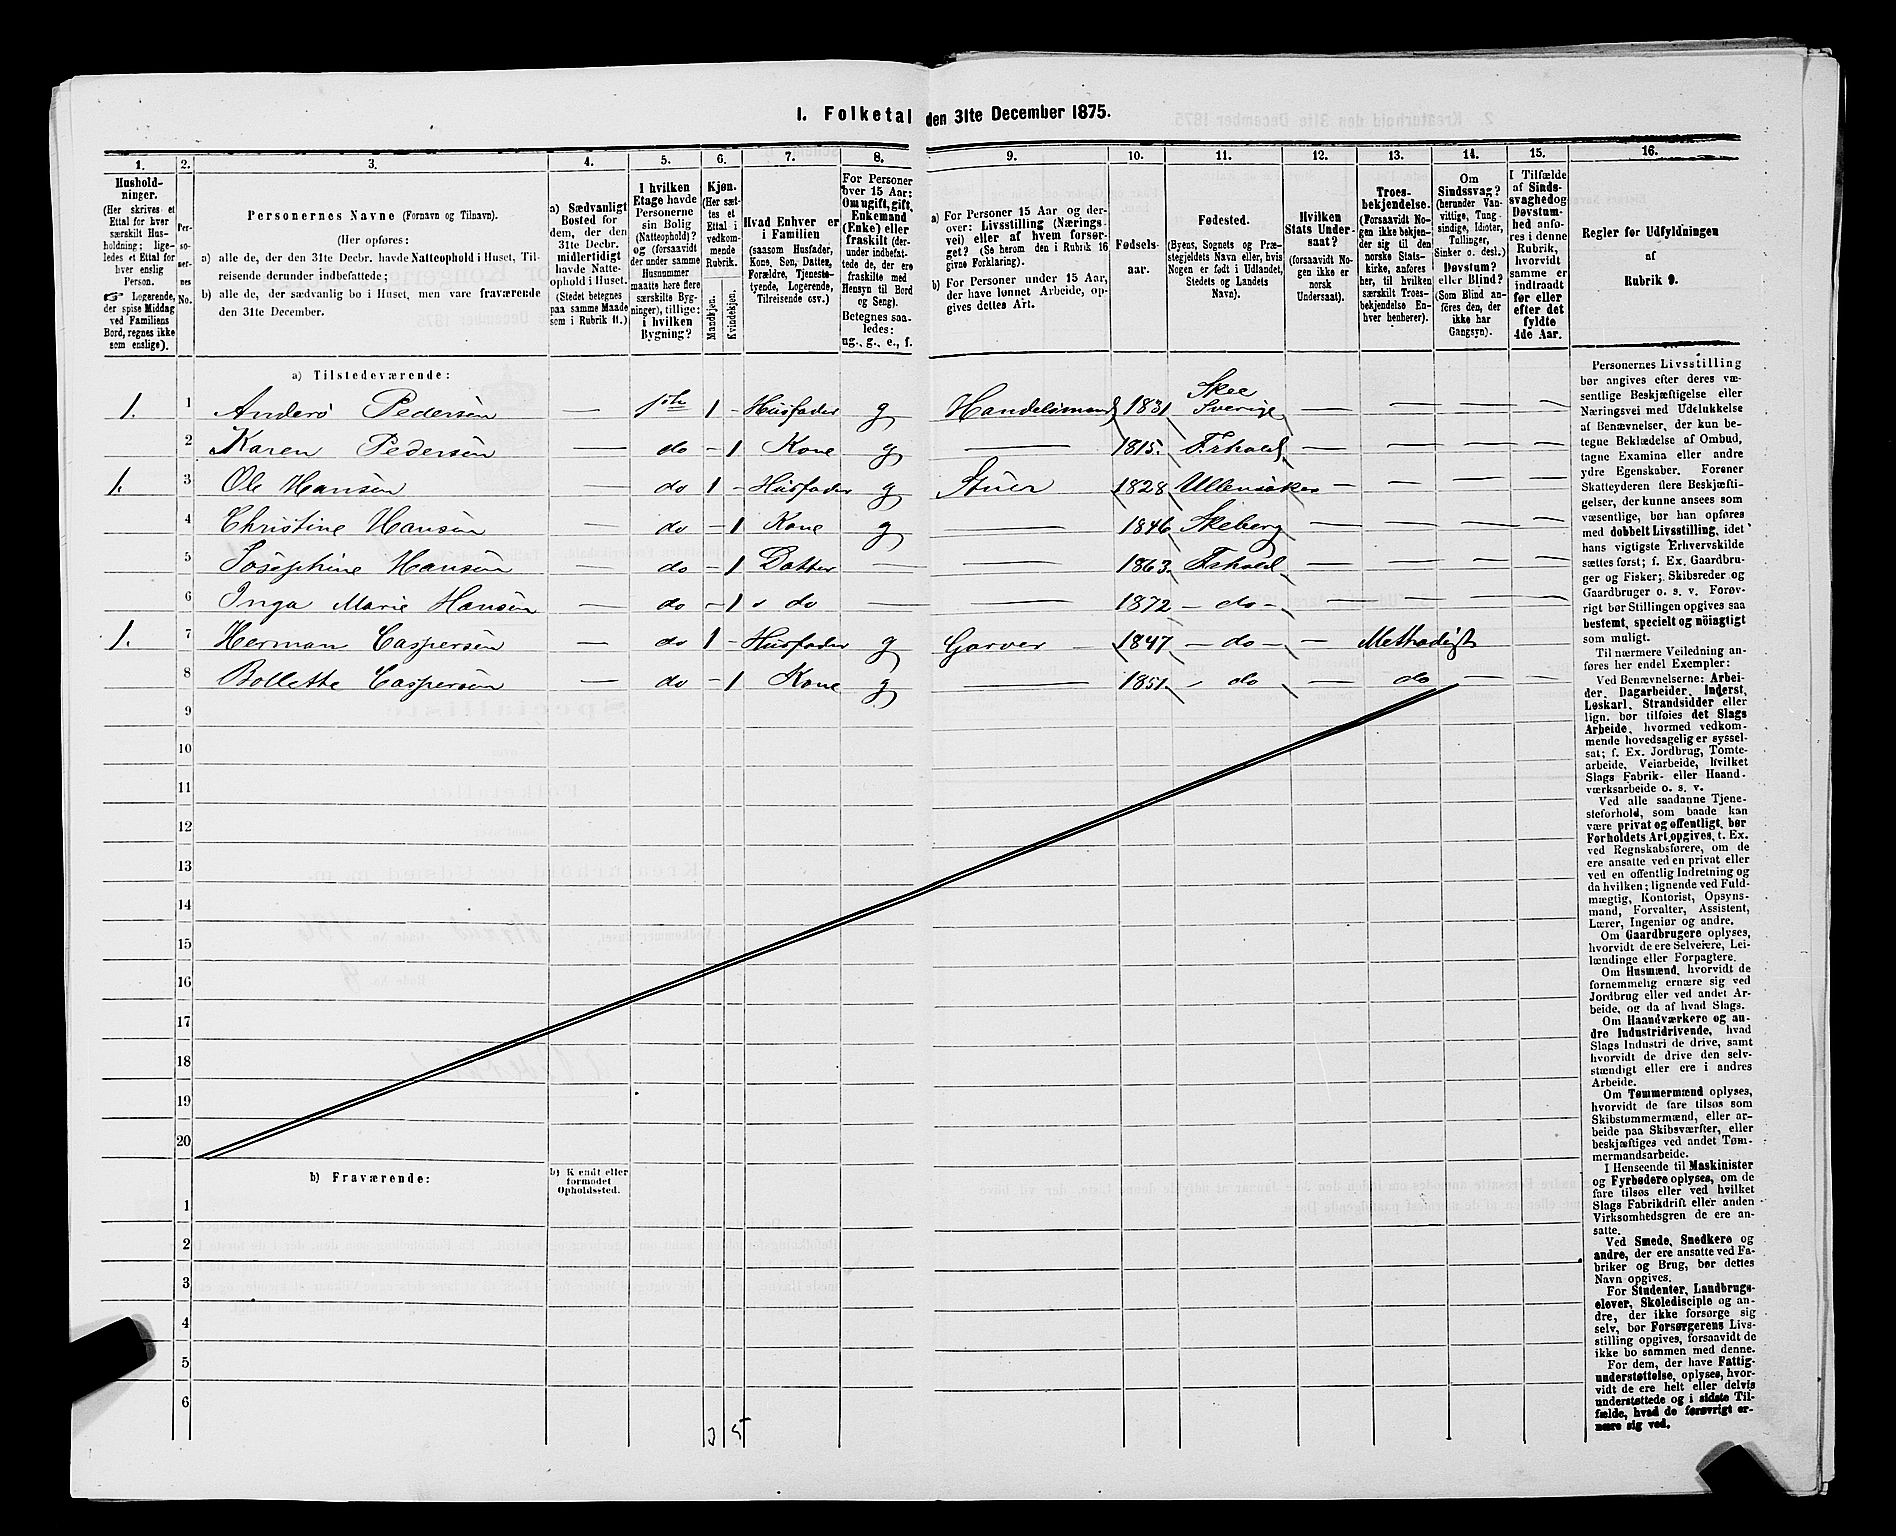 1. Folketal den 31te December 1875.
1. 2. 3. 4. 5. 6. 7. 8. 9. 10. 11. 12. 13. 14. 15. 16.
Hushold-
ninger.
(Her skrives et
Ettal for hver
særskilt Hus-
holdning; lige-
ledes et Ettal for
hver enslig
Person.
☞ Logerende,
der spise Middag
ved Familiens
Bord, regnes ikke
som enslige).
Per-
so-
ner-
nes
No.
Personernes Navne (Fornavn og Tilnavn).
(Her opføres:
a) alle de, der den 31te Decbr. havde Natteophold i Huset, Til-
reisende derunder indbefattede;
b) alle de, der sædvanlig bo i Huset, men vare fraværende
den 31te December.
a) Sædvanligt
Bosted for
dem, der den
31te Decbr.
midlertidigt
havde Natte-
ophold i Huset.
(Stedet betegnes
paa samme Maade
som i Rubrik 11.)
I hvilken
Etage havde
Personerne
sin Bolig
(Natteophold)?
og (forsaavidt
der under samme
Husnummer
maatte høre flere
særskilte Byg-
ninger), tillige:
i hvilken
Bygning?
Kjøn.
(Her sæt-
tes et
Ettal i
vedkom-
mende
Rubrik.
Mandkjøn.
Kvindekjøn.
Hvad Enhver er
i Familien
(saasom Husfader,
Kone, Søn, Datter,
Forældre, Tjeneste-
tyende, Logerende,
Tilreisende osv.)
For Personer
over 15 Aar:
Om ugift, gift,
Enkemand
(Enke) eller
fraskilt (der-
under indbefat-
tede de, der ere
fraskilte med
Hensyn til Bord
og Seng).
Betegnes saa-
ledes:
ug., g., e., f.
a) For Personer 15 Aar og der-
over: Livsstilling (Nærings-
vei) eller af hvem forsør-
get? (Se herom den i Rubrik 16
givne Forklaring).
b) For Personer under 15 Aar,
der have lønnet Arbeide, op-
gives dettes Art.
Fødsels-
aar.
Fødested.
(Byens, Sognets og Præ-
stegjeldets Navn eller, hvis
Nogen er født i Udlandet,
Stedets og Landets
Navn).
Hvilken
Stats Under-
saat?
(forsaavidt No-
gen ikke er
norsk
Undersaat).
Troes-
bekjendelse.
(Forsaavidt No-
gen ikke bekjen-
der sig til den
norske Stats-
kirke, anføres
her, til hvilken
særskilt Troes-
bekjendelse En-
hver henhører).
Om
Sindssvag?
(herunder Van-
vittige, Tung-
sindige, Idioter,
Tullinger,
Sinker o. desl.)
Døvstum?
eller Blind?
(Som Blind an-
føres den, der
ikke har
Gangsyn).
I Tilfælde
af Sinds-
svaghed og
Døvstum-
hed anfø-
res i denne
Rubrik,
hvorvidt
samme er
indtraadt
før eller
efter det
fyldte
4de Aar.
Regler for Udfyldningen
af
Rubrik 9.
a) Tilstedeværende:
1. 1 Anders Pedersen — 1ste 1 – Husfader g Handelsmand 1831 Skee Sverige — — — —
2 Karen Pedersen — do – 1 Kone g — 1815. Frhald — — — —
1. 3 Ole Hansen — do 1 – Husfader g Stuer 1828 Ullensaker — — — —
4 Christine Hansen — do – 1 Kone g — 1846 Skeberg — — — —
5 Josephine Hansen — do – 1 Datter — — 1863. Frhald — — — —
6 Inga Marie Hansen — do – 1 do — — 1872 – do – — — — —
1. 7 Herman Caspersen — do 1 – Husfader g Garver 1847 – do – — Methodist — —
8 Bollette Caspersen — do – 1 Kone g — 1851 do — do — —
9
10
11
12
13
14
15
16
17
18
19
20
b) Fraværende:
b) Kjendt eller
formodet
Opholdssted.
1
2
3
4
5
6
3 5
Personernes Livsstilling
bør angives efter deres væ-
sentlige Beskjæftigelse eller
Næringsvei med Udelukkelse
af Benævnelser, der kun be-
tegne Beklædelse af Ombud,
tagne Examina eller andre
ydre Egenskaber. Forener
Skatteyderen flere Beskjæfti-
gelser, der kunne ansees som
væsentlige, bør han opføres
med dobbelt Livsstilling, idet
hans vigtigste Erhvervskilde
sættes først; f. Ex. Gaardbru-
ger og Fisker; Skibsreder og
Gaardbruger o. s. v. Forøv-
rigt bør Stillingen opgives saa
bestemt, specielt og nöiagtigt
som muligt.
Til nærmere Veiledning an-
føres her endel Exempler:
Ved Benævnelserne: Arbei-
der, Dagarbeider, Inderst,
Løskarl, Strandsidder eller
lign. bør tilføies det Slags
Arbeide, hvormed vedkom-
mende hovedsagelig er syssel-
sat; f. Ex. Jordbrug, Tomte-
arbeide, Veiarbeide, hvilket
Slags Fabrik- eller Haand-
værksarbeide o. s. v.
Ved alle saadanne Tjene-
steforhold, som baade kan
være privat og offentligt, bør
Forholdets Art opgives, t. Ex.
ved Regnskabsførere, om de
ere ansatte ved en privat eller
ved en offentlig Indretning og
da hvilken; lignende ved Fuld-
mægtig, Kontorist, Opsyns-
mand, Forvalter, Assistent,
Lærer, Ingeniør og andre.
Om Gaardbrugere oplyses,
hvorvidt de ere Selveiere, Lei-
lændinge eller Forpagtere.
Om Husmænd, hvorvidt de
fornemmelig ernære sig ved
Jordbrug eller ved andet Ar-
beide, og da af hvad Slags.
Om Haandværkere og an-
dre Industridrivende, hvad
Slags Industri de drive, samt
hvorvidt de drive den selv-
stændigt eller ere i andres
Arbeide.
Om Tømmermænd oplyses,
hvorvidt de fare tilsøs som
Skibstømmermænd, eller ar-
beide paa Skibsværfter, eller
beskjæftiges ved andet Tøm-
mermandsarbeide.
I Henseende til Maskinister
og Fyrbødere oplyses, om de
fare tilsøs eller ved hvilket
Slags Fabrikdrift eller anden
Virksomhedsgren de ere an-
satte.
Ved Smede, Snedkere og
andre, der ere ansatte ved Fa-
briker og Brug, bør dettes
Navn opgives.
For Studenter, Landbrugs-
elever, Skoledisciple og an-
dre, der ikke forsørge sig
selv, bør Forsørgerens Livs-
stilling opgives, forsaavidt de
ikke bo sammen med denne.
For dem, der have Fattig-
understøttelse, oplyses, hvor-
vidt de ere helt eller delvis
understøttede og i sidste Til-
fælde, hvad de forøvrigt er-
nære sig ved.